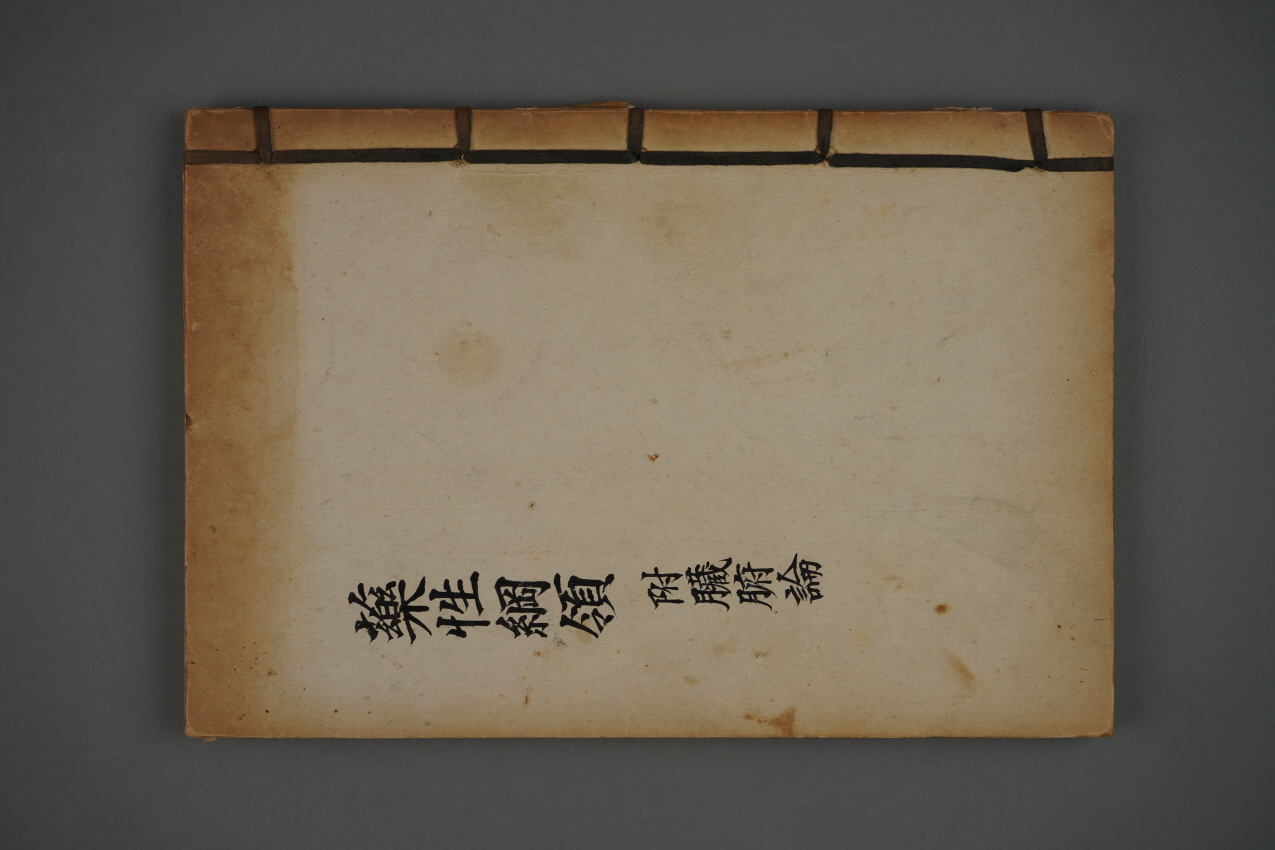 藥性綱領 附臟腑論